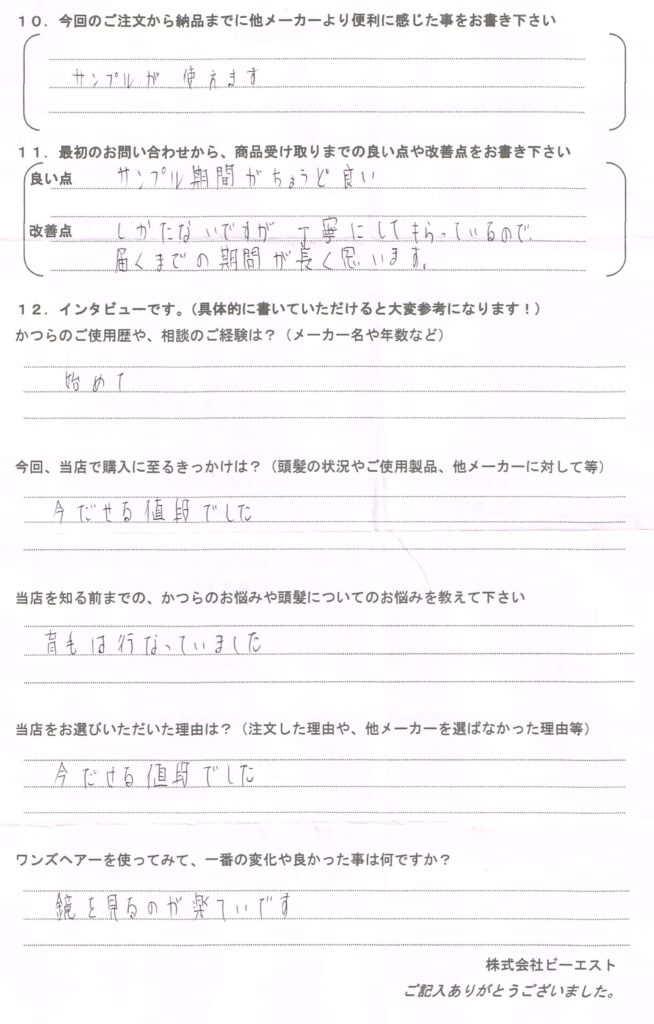 １０．今回のご注文から納品までに他メーカーより便利に感じた事をお書き下さい
サンプルが 使えます
１１．最初のお問い合わせから、商品受け取りまでの良い点や改善点をお書き下さい
良い点 サンプル期間がちょうど良い
改善点 しかたないですが 丁寧にしてもらっているので、
届くまでの期間が長く思います。
１２．インタビューです。（具体的に書いていただけると大変参考になります！）
かつらのご使用歴や、相談のご経験は？（メーカー名や年数など）
始めて
今回、当店で購入に至るきっかけは？（頭髪の状況やご使用製品、他メーカーに対して等）
今だせる値段でした
当店を知る前までの、かつらのお悩みや頭髪についてのお悩みを教えて下さい
育毛は行なっていました
当店をお選びいただいた理由は？（注文した理由や、他メーカーを選ばなかった理由等）
今だせる値段でした
ワンズヘアーを使ってみて、一番の変化や良かった事は何ですか？
鏡を見るのが楽しいです
株式会社ビーエスト
ご記入ありがとうございました。